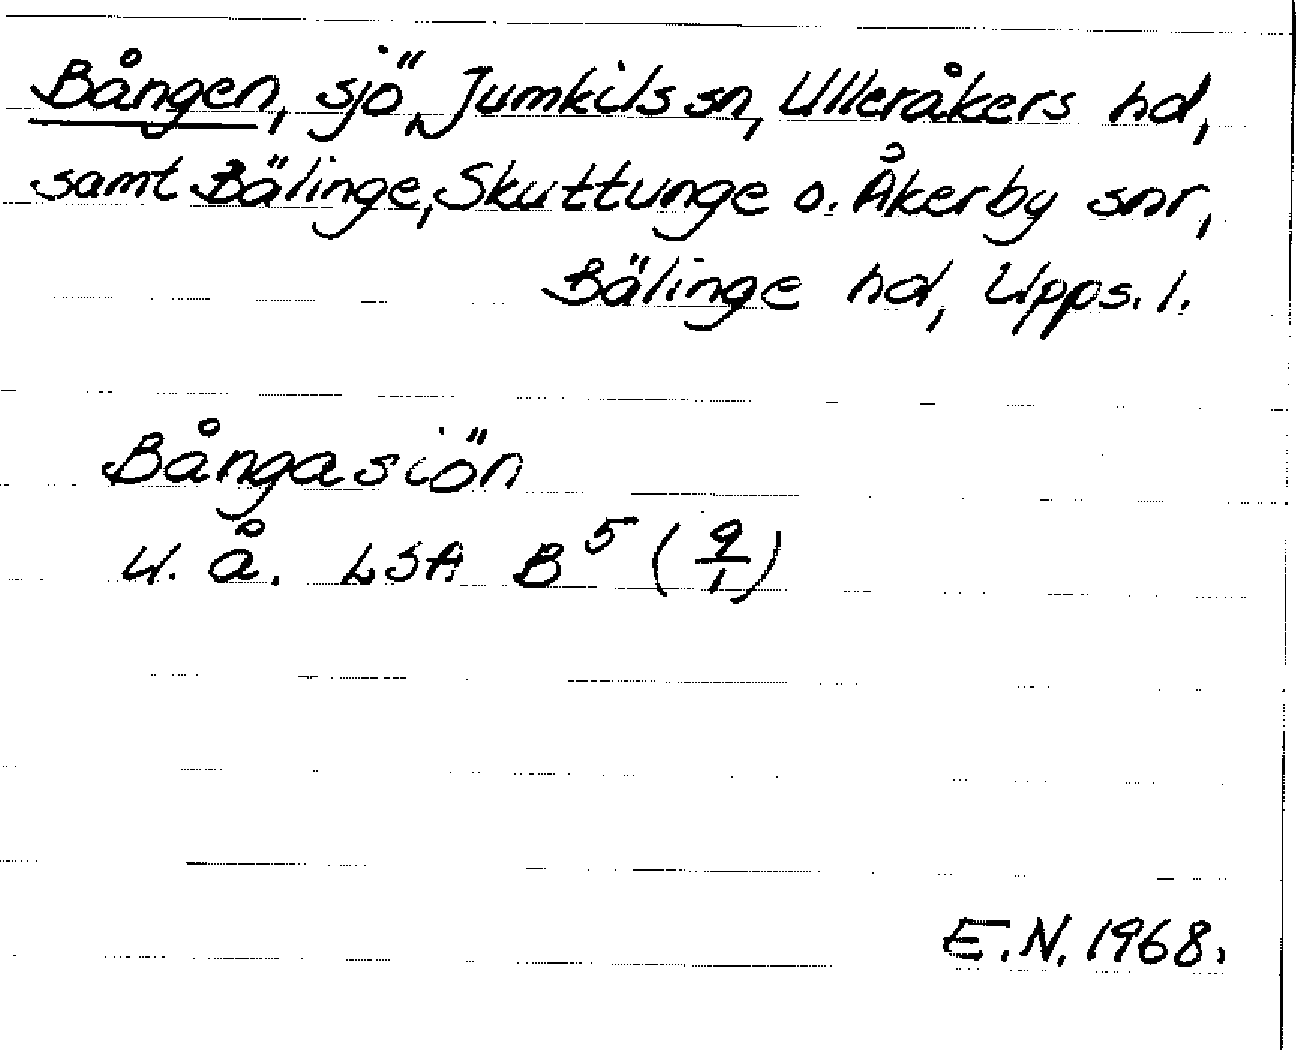 Bången, sjö, Jumkils sn, Ulleråkers hd,
samt Bälinge, Skuttunge o. Åkerby snr,
Bälinge hd, Upps. l.
Bångasiön
u. å. LSA B⁵ (9/1)
E.N. 1968.